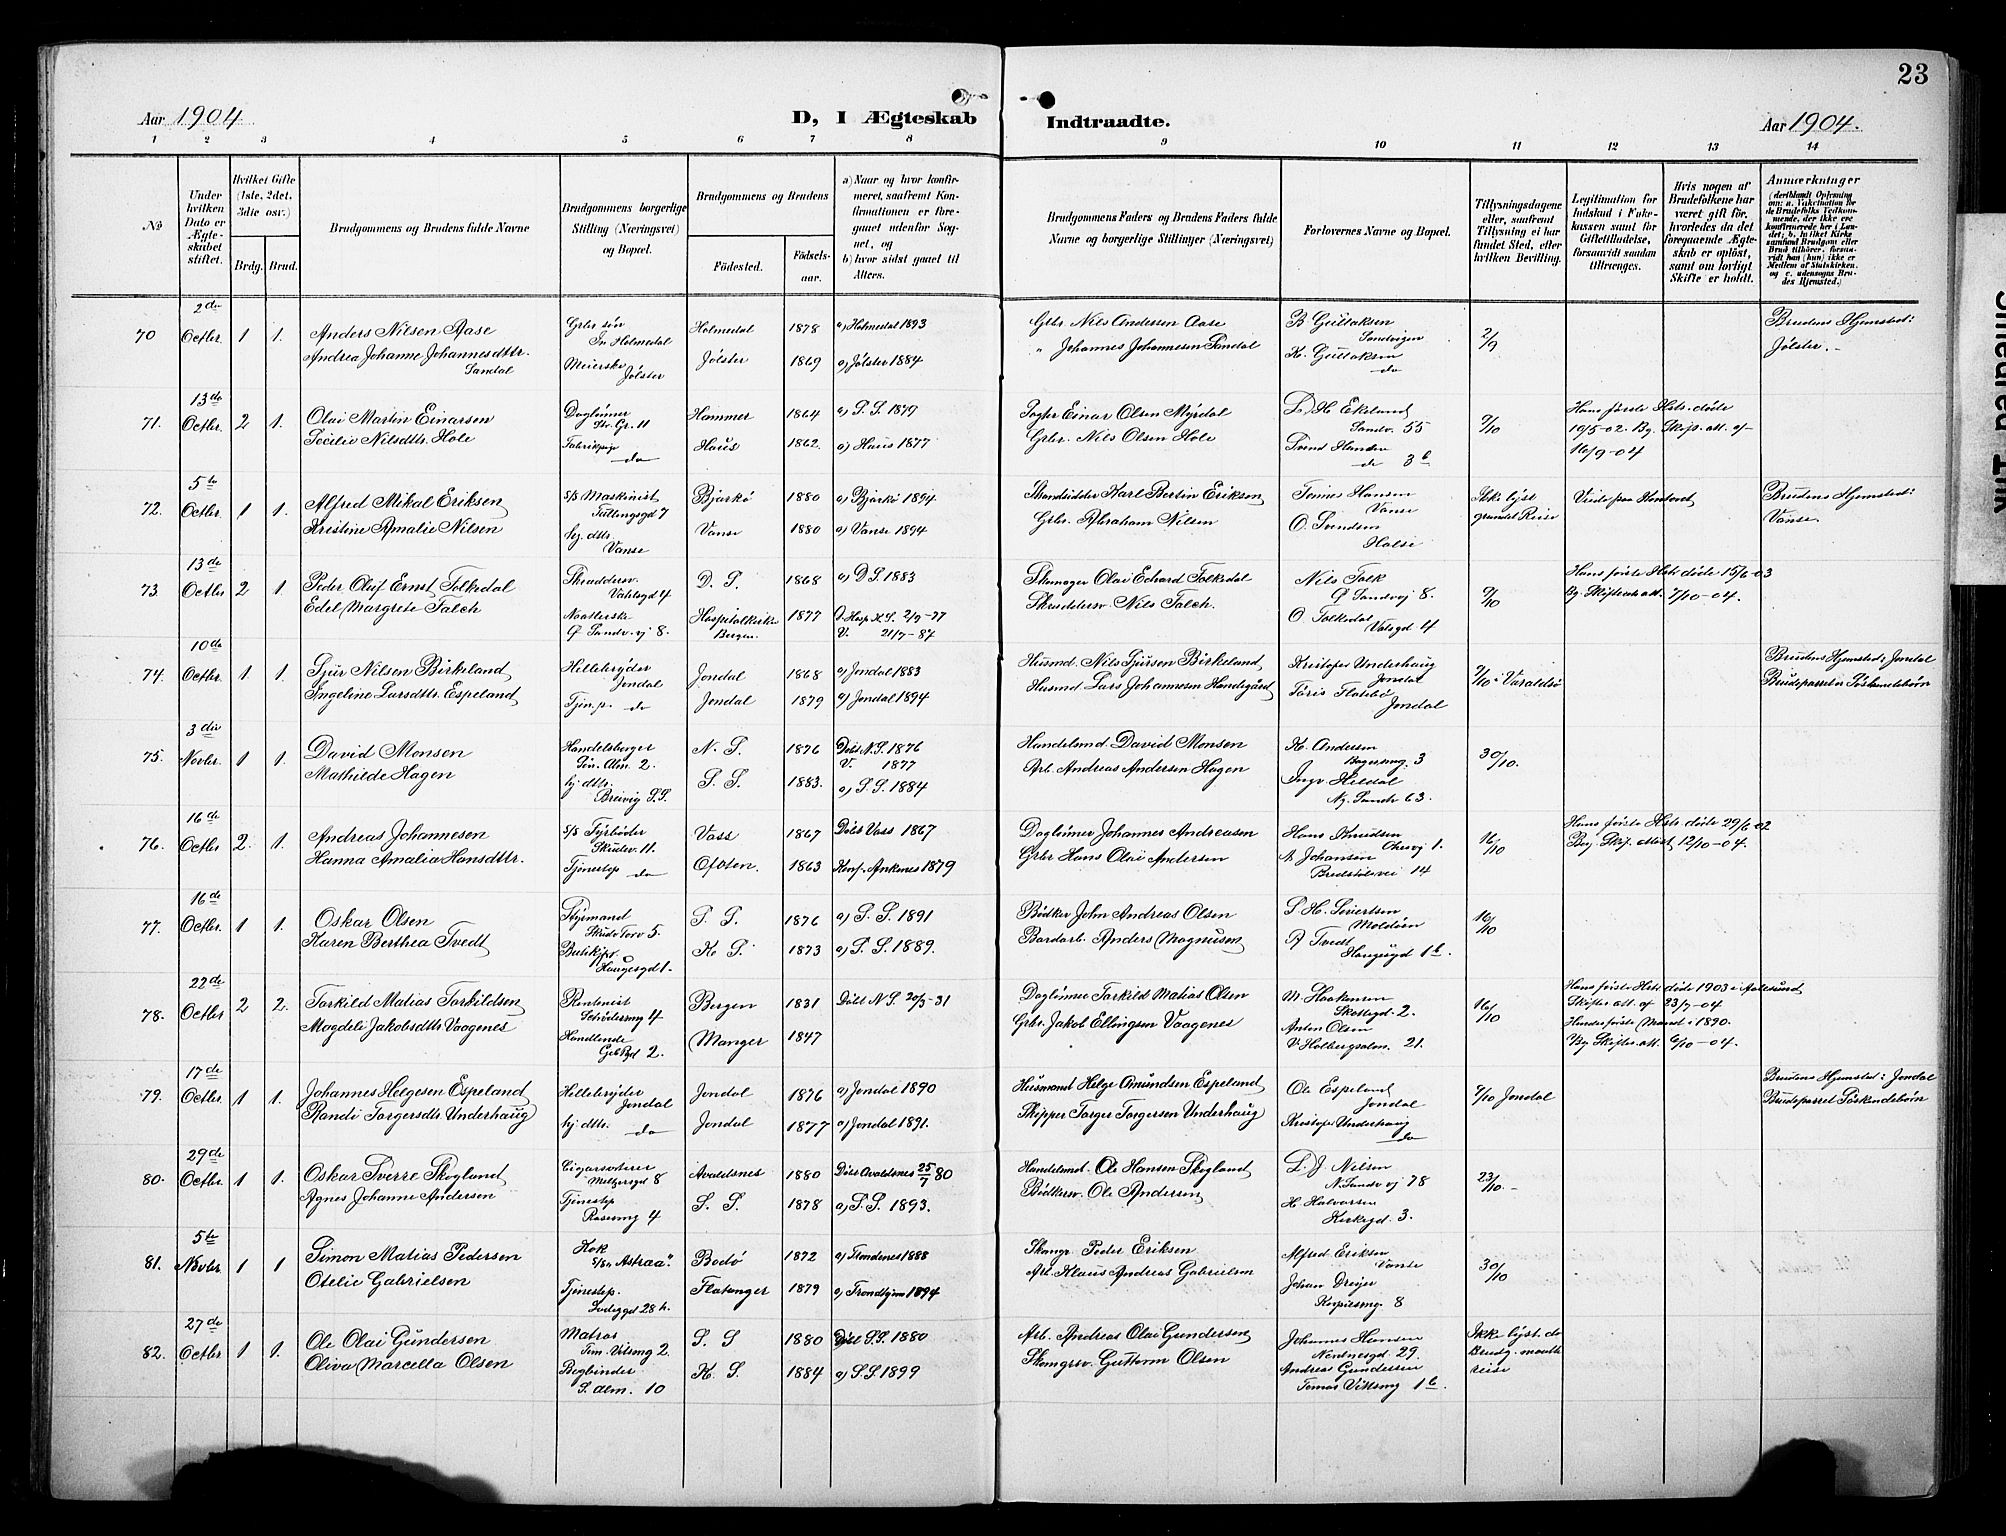 23
Aar 1904
D, I Ægteskab
Indtraadte.
Aar 1904.
1 2 3 4 5 6 7 8
9 10 11 12 13 14
No
Under hvilken Dato er Ægteskabet stiftet.
Hvilket Gifte (1ste, 2det, 3die osv.)
Brdg. Brud.
Brudgommens og Brudens fulde Navne
Brudgommens borgerlige Stilling (Næringsvei) og Bopæl.
Brudgommens og Brudens
Födested.
Födselsaar.
a) Naar og hvor konfirmeret, saafremt Konfirmationen er foregaaet udenfor Sognet, og
b) hvor sidst gaaet til Alters.
Brudgommens Faders og Brudens Faders fulde Navne og borgerlige Stillinger (Næringsvei)
Forlovernes Navne og Bopæl.
Tillysningsdagene eller, saafremt Tillysning ei har fundet Sted, efter hvilken Bevilling.
Legitimation for Indskud i Enkekassen samt for Giftetilladelse, forsaavidt saadan tiltrænges.
Hvis nogen af Brudefolkene har været gift før, hvorledes da det foregaaende Ægteskab er opløst, samt om lovligt Skifte er holdt.
Anmærkninger
70
2de Octbr.
1 1.
Anders Nilsen Aase
Andrea Johanne Johannesdttr. Sandal
Grbr. søn
Holmedal
Meierske
Jølster
Holmedal 1878 a) Holmedal 1893
Jølster 1869 a) Jølster 1884
Grbr. Nils Andersen Aase
" Johannes Johannesen Sandal
B Gullaksen
Sandvigen
K. Gullaksen
do
2/9
Brudens Hjemsted:
Jølster. -
71.
13de Octbr.
2 1.
Olai Martin Einarsen
Secilie Nilsdttr. Hole
Daglønner
do
Hammer 1864 a) S. S. 1879
Haus 1862. a) Haus 1877
Einar Olsen Myrdal
Grbr. Nils Olsen Hole
L. H. Ekeland
Sandv. 55
Svend Hansen
do 3 b
9/10
Hans første Hstr. døde
19/5-02. By. Skif. att. af
16/9-04
72.
5te Octbr.
1 1.
Alfred Mikal Eriksen
Kristine Amalie Nilsen
s/s Maskinist
hj. dttr.
Vanse
Bjarkö 1880 a) Bjarkö 1894
Vanse 1880 a) Vanse 1894
Strandsidder Karl Bertin Eriksen
Grbr. Abraham Nilsen
Hansen
Vanse
O. Svendsen
Ikke lyst
grundet Reise
Brudens Hjemsted:
Vanse.
73
13de Octbr
2 1.
Peder Oluf Ernst Folkedal
Edel Margrete Falch
Skræddersv.
4
Sandv. vj 8.
D. S. 1868 a) D S. 1883
Hospitalkirke Bergen. 1877
V. 21/9-84
Skomager Olai Edvard Folkedal
Skræddersv. Nils Falch.
Nils Falk
Ø Sandvj 8.
O Folkedal
4
9/10
Hans første Hstr. døde 15/6-03
By. Skifteratt. 7/10-04.
74.
10de Octbr.
1 1.
Sjur Nilsen Birkeland
Ingeline Larsdttr. Espeland
Hellebryder
Jondal
Tjen. p. do
Jondal 1868 a) Jondal 1883
Jondal 1879 a) Jondal 1894
Husmd. Nils Sjursen Birkeland
Husmd Lars Johannesen Handegård
Kristofer Underhaug
Jondal
Jondal
9/10 i Varaldsö
Brudens Hjemsted: Jondal
Brudeparret er Söskendebörn
75.
3die Novbr.
1 1.
David Monsen
Mathilde Hagen
Handelsborger
Alm. 2.
hj. dttr.
Breivig S.S.
N. S. 1876 Döbt N.S. 1876
V. 1877
S. S. 1883. a) S. S. 1884
Handelsmd. David Monsen
Arb. Andreas Andersen Hagen
K. Andersen
3
Ingv Hildal
Ny. Sandv 63.
30/10.
76.
16de Octbr
2. 1.
Andreas Johannesen
Hanna Amalia Hansdttr.
s/s Fyrböder
11.
Tjenestep do
Voss 1867 Döbt Voss 1867
Ofoten. 1863 Konf. Ankenes 1879
Daglönner Johannes Andreasen
Grbr Hans Olai Andersen
Hans Knudsen
1.
A Johansen
14
16/10
Hans første Hstr døde 29/6 02
By. Skif. attest 12/10-04.
77.
16de Octbr
1 1.
Oskar Olsen
Karen Berthea Tvedt
Styrmand
Torv 5.
Haugesgd 1.
S. S. 1876 a) S. S. 1891
K S. 1873 a) S. S. 1889.
Bödker John Andreas Olsen
Bordarb. Anders Magnusen
S. H. Sivertsen
A Tvedt
Haugesgd 1 b.
16/10
78.
22de Octbr
2 2.
Torkild Matias Torkildsen
Magdeli Jakobsdttr Vaagenes
Rentenist
4
Handlende
2.
Bergen 1831 Döbt N S. 20/3-31
Manger 1847
Daglönner Torkild Matias Olsen
Grbr. Jakob Ellingsen Vaagenes
M. Haakensen
2.
Anton Olsen
V Holbergsalm. 21.
16/10
Hans første Hstr. døde 1903 i Aalesund
Skifter att. af 23/9-04
Hendes første Mand i 1890.
By Skifter. att. 6/10-04.
79.
17de Octbr
1 1.
Johannes Helgesen Espeland
Randi Torgersdttr Underhaug
Hellebryder
Jondal
hj. dttr. do
Jondal 1876 a) Jondal 1890
Jondal 1877 a) Jondal 1891.
Husmand Helge Amundsen Espeland
Skipper Torger Torgersen Underhaug
Ole Espeland
Jondal
Kristofer Underhaug
do
9/10 Jondal
Brudens Hjemsted: Jondal
Brudeparret Söskendebörn
80.
29de Octbr
1 1.
Oskar Sverre Skogland
Agnes Johanne Andersen
8
Tjenestep
4
Avaldsnes 1880 Döbt Avaldsnes 25/7 80
S. S. 1878 a) S. S. 1893.
Handelsmd. Ole Hansen Skogland
Bödkersv. Ole Andersen
L. J. Nilsen
N. Sandv vj 78
H. Halvorsen
Kirkegd. 3.
23/10. -
81.
5te Novbr.
1 1
Simon Matias Pedersen
Otelie Gabrielsen
Kok
"Astraa"
Tjenestep.
28 b.
Bodö 1872 a) Trondenes 1888
Flatanger 1879 a) Trondhjem 1894
Peder Eriksen
Arb. Klaus Andreas Gabrielsen
Alfred Eriksen
Vanse
Johan Dreyer
8
30/10
82.
27de Octbr
1 1.
Ole Olai Gundersen
Oliva Marcella Olsen
Matros
2.
Bogbinder
S. Alm. 10
S. S 1880 Döbt S.S. 1880
K. S. 1884 a) S. S 1899
Arb. Andreas Olai Gundersen
Guttorm Olsen
Johannes Hansen
Nordnesgd. 29.
Andreas Gundersen
1 b.
Ikke lyst. da
Brudg. maatte
reise